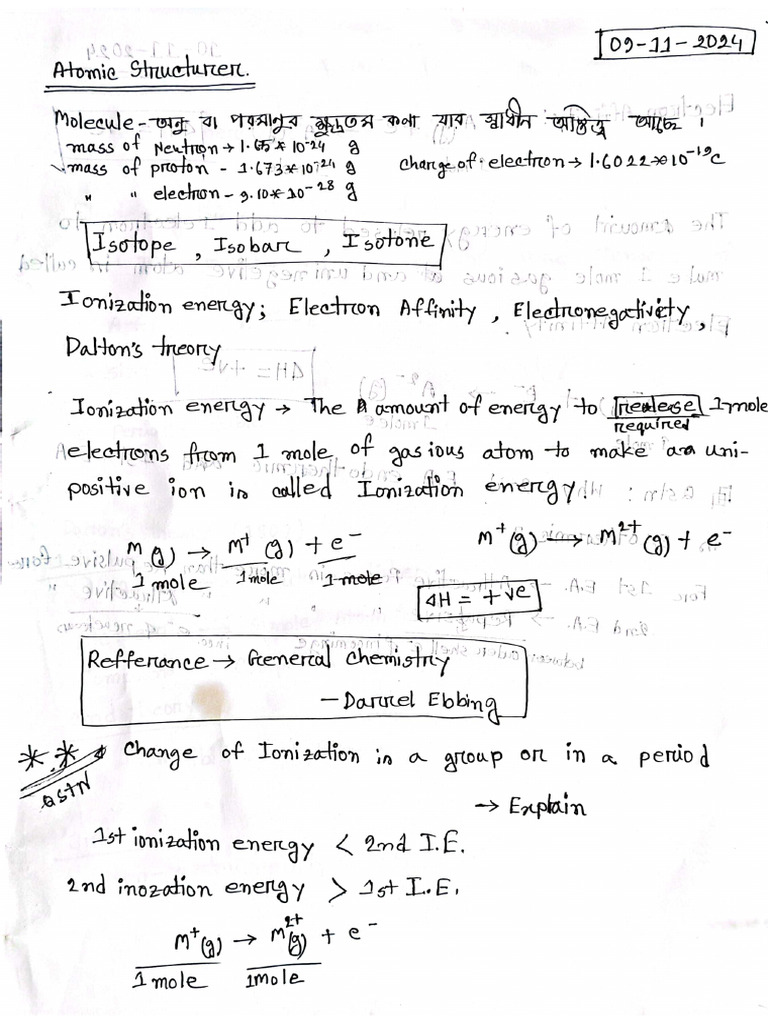 09-11-2024
Atomic Structurer.
Molecule - অনু বা পরমানুর ক্ষুদ্রতম কণা যার স্বাধীন অস্তিত্ব আছে ।
mass of Neutron → 1.675 * 10^-24 g
mass of proton - 1.673*10^-24 g charge of electron → 1.6022*10^-19 C
" " electron - 9.10*10^-28 g
Isotope, Isobar, Isotone
Ionization energy; Electron Affinity, Electronegativity,
Dalton's theory
Ionization energy → The amount of energy to release 1 mole
required
electrons from 1 mole of gasious atom to make an uni-
positive ion is called Ionization energy.
M(g) → M+ (g) + e- M+(g) → M2+ (g) + e-
1 mole 1 mole 1 mole
ΔH = +ve
Refferance → General Chemistry
- Darrel Ebbing
** Change of Ionization in a group or in a period
qstn
→ Explain
1st ionization energy < 2nd I.E.
2nd inozation energy > 1st I.E.
M+(g) → M2+(g) + e-
1 mole 1mole